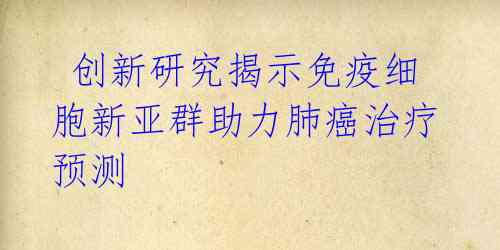 创新研究揭示免疫细
胞新亚群助力肺癌治疗
预测